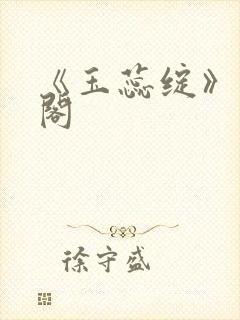 《玉蕊绽》
阁
徐守盛